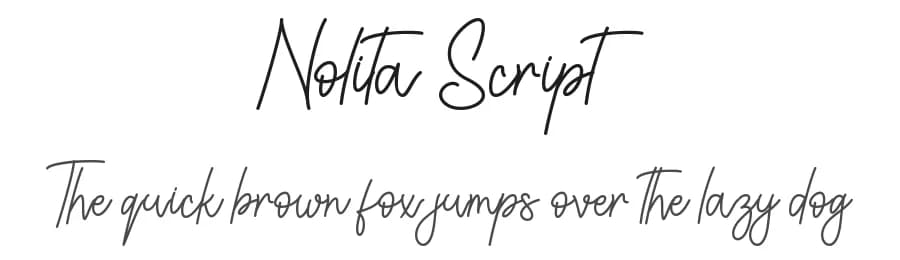 Nolita Script
The quick brown fox jumps over the lazy dog